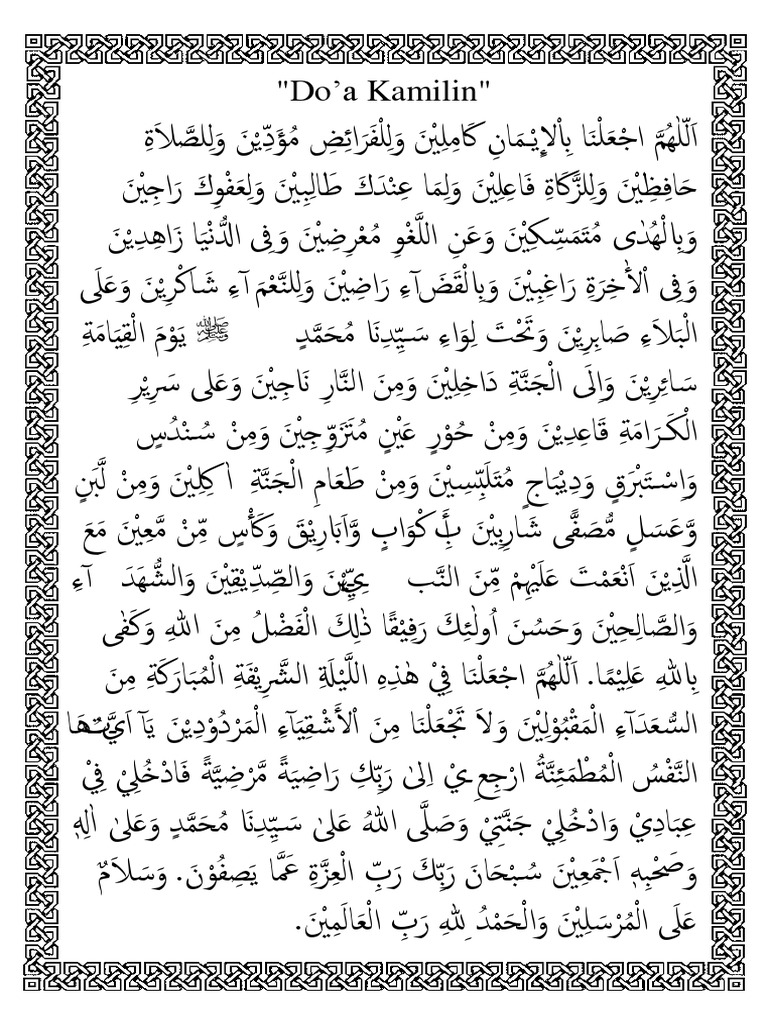 "Do’a Kamilin"
اَللّٰهُمَّ اجْعَلْنَا بِاْلإِيْمَانِ كَامِلِيْنَ وَلِلْفَرَائِضِ مُؤَدِّيْنَ وَلِلصَّلاَةِ
حَافِظِيْنَ وَلِلزَّكَاةِ فَاعِلِيْنَ وَلِمَا عِنْدَكَ طَالِبِيْنَ وَلِعَفْوِكَ رَاجِيْنَ
وَبِالْهُدٰى مُتَمَسِّكِيْنَ وَعَنِ اللَّغْوِ مُعْرِضِيْنَ وَفِى الدُّنْيَا زَاهِدِيْنَ
وَفِى اْلأٰخِرَةِ رَاغِبِيْنَ وَبِالْقَضَآءِ رَاضِيْنَ وَلِلنَّعْمَآءِ شَاكْرِيْنَ وَعَلَى
الْبَلاَءِ صَابِرِيْنَ وَتَحْتَ لِوَاءِ سَيِّدِنَا مُحَمَّدٍ ﷺ يَوْمَ الْقِيَامَةِ
سَائِرِيْنَ وَاِلَى الْجَنَّةِ دَاخِلِيْنَ وَمِنَ النَّارِ نَاجِيْنَ وَعَلى سَرِيْرِ
الْكَرَامَةِ قَاعِدِيْنَ وَمِنْ حُوْرٍ عَيْنٍ مُتَزَوِّجِيْنَ وَمِنْ سُنْدُسٍ
وَاِسْتَبْرَقٍ وَدِيْبَاجٍ مُتَلَبِّسِيْنَ وَمِنْ طَعَامِ الْجَنَّةِ اٰكِلِيْنَ وَمِنْ لَّبَنٍ
وَّعَسَلٍ مُّصَفًّى شَارِبِيْنَ بِأَكْوَابٍ وَّاَبَارِيْقَ وَكَأْسٍ مِّنْ مَّعِيْنَ مَعَ
الَّذِيْنَ اَنْعَمْتَ عَلَيْهِمْ مِّنَ النَّبِيِّيْنَ وَالصِّدِّيْقِيْنَ وَالشُّهَدَآءِ
وَالصَّالِحِيْنَ وَحَسُنَ اُولٰئِكَ رَفِيْقًا ذٰلِكَ الْفَضْلُ مِنَ اللهِ وَكَفٰى
بِاللهِ عَلِيْمًا. اَللّٰهُمَّ اجْعَلْنَا فِيْ هٰذِهِ اللَّيْلَةِ الشَّرِيْفَةِ الْمُبَارَكَةِ مِنَ
السُّعَدَآءِ الْمَقْبُوْلِيْنَ وَلاَ تَجْعَلْنَا مِنَ اْلأَشْقِيَآءِ الْمَرْدُوْدِيْنَ يَآ اَيَّتُهَا
النَّفْسُ الْمُطْمَئِنَّةُ ارْجِعِيْ اِلىٰ رَبِّكِ رَاضِيَةً مَّرْضِيَّةً فَادْخُلِيْ فِيْ
عِبَادِيْ وَادْخُلِيْ جَنَّتِيْ وَصَلَّى اللهُ عَلىٰ سَيِّدِنَا مُحَمَّدٍ وَعَلىٰ اٰلِهٖ
وَصَحْبِهٖ اَجْمَعِيْنَ سُبْحَانَ رَبِّكَ رَبِّ الْعِزَّةِ عَمَّا يَصِفُوْنَ. وَسَلاَمٌ
عَلَى الْمُرْسَلِيْنَ وَالْحَمْدُ لِلهِ رَبِّ الْعَالَمِيْنَ.